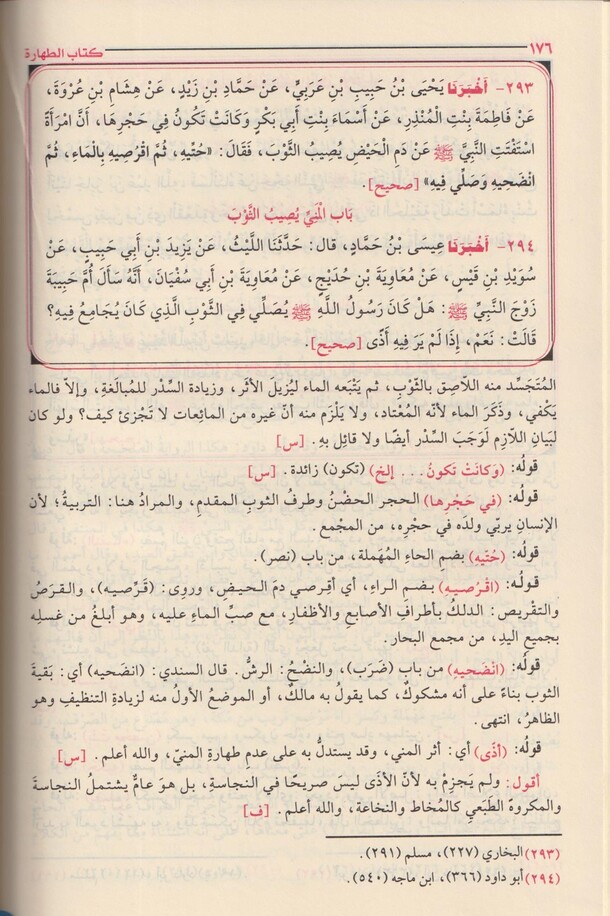 ١٧٦ كتاب الطهارة
٢٩٣- أَخْبَرَنَا يَحْيَى بْنُ حَبِيبِ بْنِ عَرَبِيٍّ، عَنْ حَمَّادِ بْنِ زَيْدٍ، عَنْ هِشَامِ بْنِ عُرْوَةَ،
عَنْ فَاطِمَةَ بِنْتِ الْمُنْذِرِ، عَنْ أَسْمَاءَ بِنْتِ أَبِي بَكْرٍ وَكَانَتْ تَكُونُ فِي حَجْرِهَا، أَنَّ امْرَأَةً
اسْتَفْتَتِ النَّبِيَّ ﷺ عَنْ دَمِ الْحَيْضِ يُصِيبُ الثَّوْبَ، فَقَالَ: «حُتِّيهِ، ثُمَّ اقْرُصِيهِ بِالْمَاءِ، ثُمَّ
انْضَحِيهِ وَصَلِّي فِيهِ» [صحيح].
بَابُ الْمَنِيِّ يُصِيبُ الثَّوْبَ
٢٩٤- أَخْبَرَنَا عِيسَى بْنُ حَمَّادٍ، قال: حَدَّثَنَا اللَّيْثُ، عَنْ يَزِيدَ بْنِ أَبِي حَبِيبٍ، عَنْ
سُوَيْدِ بْنِ قَيْسٍ، عَنْ مُعَاوِيَةَ بْنِ حُدَيْجٍ، عَنْ مُعَاوِيَةَ بْنِ أَبِي سُفْيَانَ، أَنَّهُ سَأَلَ أُمَّ حَبِيبَةَ
زَوْجَ النَّبِيِّ ﷺ: هَلْ كَانَ رَسُولُ اللَّهِ ﷺ يُصَلِّي فِي الثَّوْبِ الَّذِي كَانَ يُجَامِعُ فِيهِ؟
قَالَتْ: نَعَمْ، إِذَا لَمْ يَرَ فِيهِ أَذًى [صحيح].
المُتَجَسِّد منه اللاَّصِق بالثَّوْبِ، ثم يَتْبَعه الماء ليُزيلَ الأثَر، وزيادة السِّدْر للمُبالَغَةِ، وإلاّ فالماء
يَكْفي، وذَكَرَ الماء لأنّه المُعْتاد، ولا يَلْزَم منه أنّ غيره من المائعات لا تَجْزئ كيف؟ ولو كان
لبَيانِ اللاّزِم لَوَجَبَ السِّدْر أيضًا ولا قائل بهِ. [س]
قولُه: (وَكَانَتْ تَكُونُ ... إلخ) (تكون) زائدة. [س]
قولُه: (في حَجْرِها) الحجر الحضْنُ وطرفُ الثوبِ المقدمِ، والمرادُ هنا: التربيةُ؛ لأن
الإنسان يربّي ولدَه في حجْرِه، من المجْمع.
قولُه: (حُتّيهِ) بضمِ الحاءِ المُهَملة، من باب (نصر).
قولُه: (اقْرُصيهِ) بضمِ الراءِ، أي أقرصي دمَ الحيضِ، وروى: (قَرّصيه)، والقرَصُ
والتقْريص: الدلكُ بأطرافِ الأصابعِ والأظفارِ، مع صبِّ الماءِ عليه، وهو أبلغُ من غسلِه
بجميع اليدِ، من مجمع البحار.
قولُه: (انْضَحيهِ) من بابِ (ضَرَبَ)، والنضْحُ: الرشُّ. قال السندي: (انضَحيه) أي: بَقيةَ
الثوب بناءً على أنه مشكوكٌ، كما يقولُ به مالكٌ، أو الموضعُ الأولُ منه لزيادةِ التنظيفِ وهو
الظاهرُ، انتهى.
قولُه: (أذًى) أي: أثر المني، وقد يستدلُّ به على عدمِ طهارةِ المنيّ، والله أعلم. [س]
أقول: ولم يَجزِمْ به لأنّ الأذَى ليسَ صريحًا في النجاسةِ، بل هوَ عامٌّ يشتملُ النجاسةَ
والمكروهَ الطبَعي كالمُخاط والنخاعة، والله أعلم. [ف]
(٢٩٣) البخاري (٢٢٧)، مسلم (٢٩١).
(٢٩٤) أبو داود (٣٦٦)، ابن ماجه (٥٤٠).